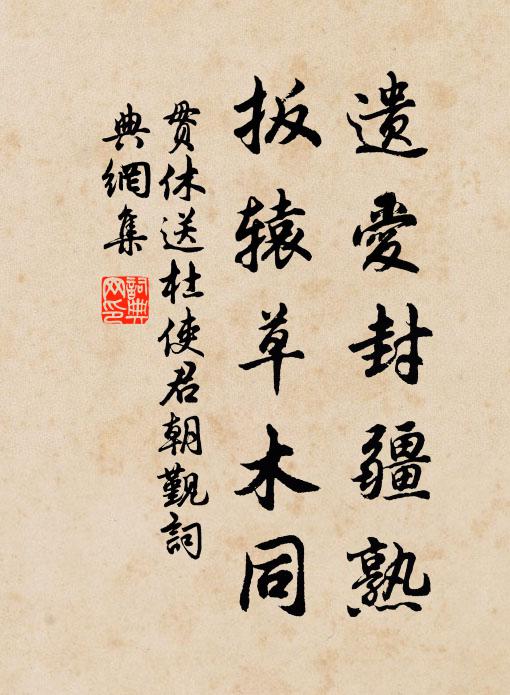 遗愛封疆熟
扳辕草木同
贯休送杜使君朝觐詞
典網集
詞典
网印